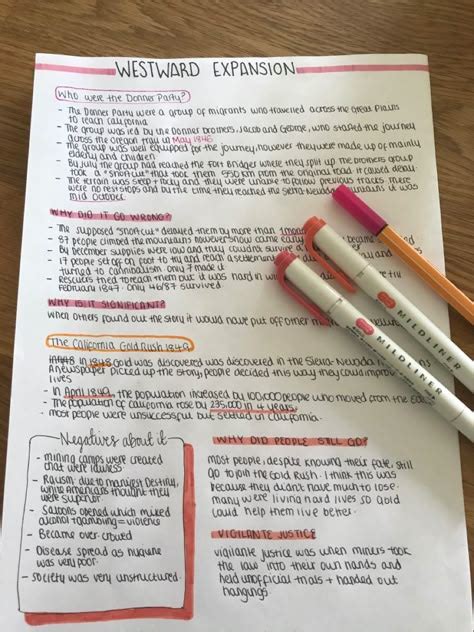 WESTWARD EXPANSION
Who were the Donner Party?
- The Donner Party were a group of migrants who travelled across the Great Plains
to reach California
- The group was led by the Donner brothers, Jacob and George, who started the journey
across the Oregon trail in May 1846
- The group was well equipped for the journey, however they were made up of mainly
elderly and children
- By July the group had reached the Fort Bridger where they split up the brothers group
took a "shortcut" that took them 550 km from the original road it caused delay
- The terrain was steep + rocky and they were unable to follow previous traces. There
were no rest stops and by the time they reached the Sierra Nevada mountains it was
mid October
WHY DID IT GO WRONG?
- The supposed "shortcut" delayed them by more than 1 month
- 87 people climbed the mountains however snow came early
- By december supplies were low and they couldnt survive a
- 17 people set off on foot to try and reach a settlement
turned to cannibalism. only 7 made it
- Rescuers tried to reach them but it was hard in wi
February 1847. Only 46/87 survived
WHY IS IT SIGNIFICANT?
When others found out the story it would have put off other
The California Gold Rush 1849
- In 1848 Gold was discovered was discovered in the Sierra Nevada
A newspaper picked up the story, people decided this way they could impro
lives
- In April 1849, the population increased by 100,000 people who moved from the Ea
- The population of california rose by 235,000 in 4 years.
- most people were unsuccessful but settled in California.
Negatives about it
- mining camps were created
that were lawless
- Racism due to manifest Destiny,
white Americans thought they
were superior
- Saloons opened which mixed
alcohol + gambling = violence
- Became over crowd
- Disease spread as hygiene
was very poor.
- Society was very unstructured.
WHY DID PEOPLE STILL GO?
most people, despite knowing their fate, still
go to join the Gold Rush. I think this was
because they didn't have much to lose.
many were living hard lives so Gold
could help them live better.
VIGILANTE JUSTICE
vigilante justice was when miners took
the law into their own hands and
held unofficial trials + handed out
hangings
MILDLINER
MILDLINER